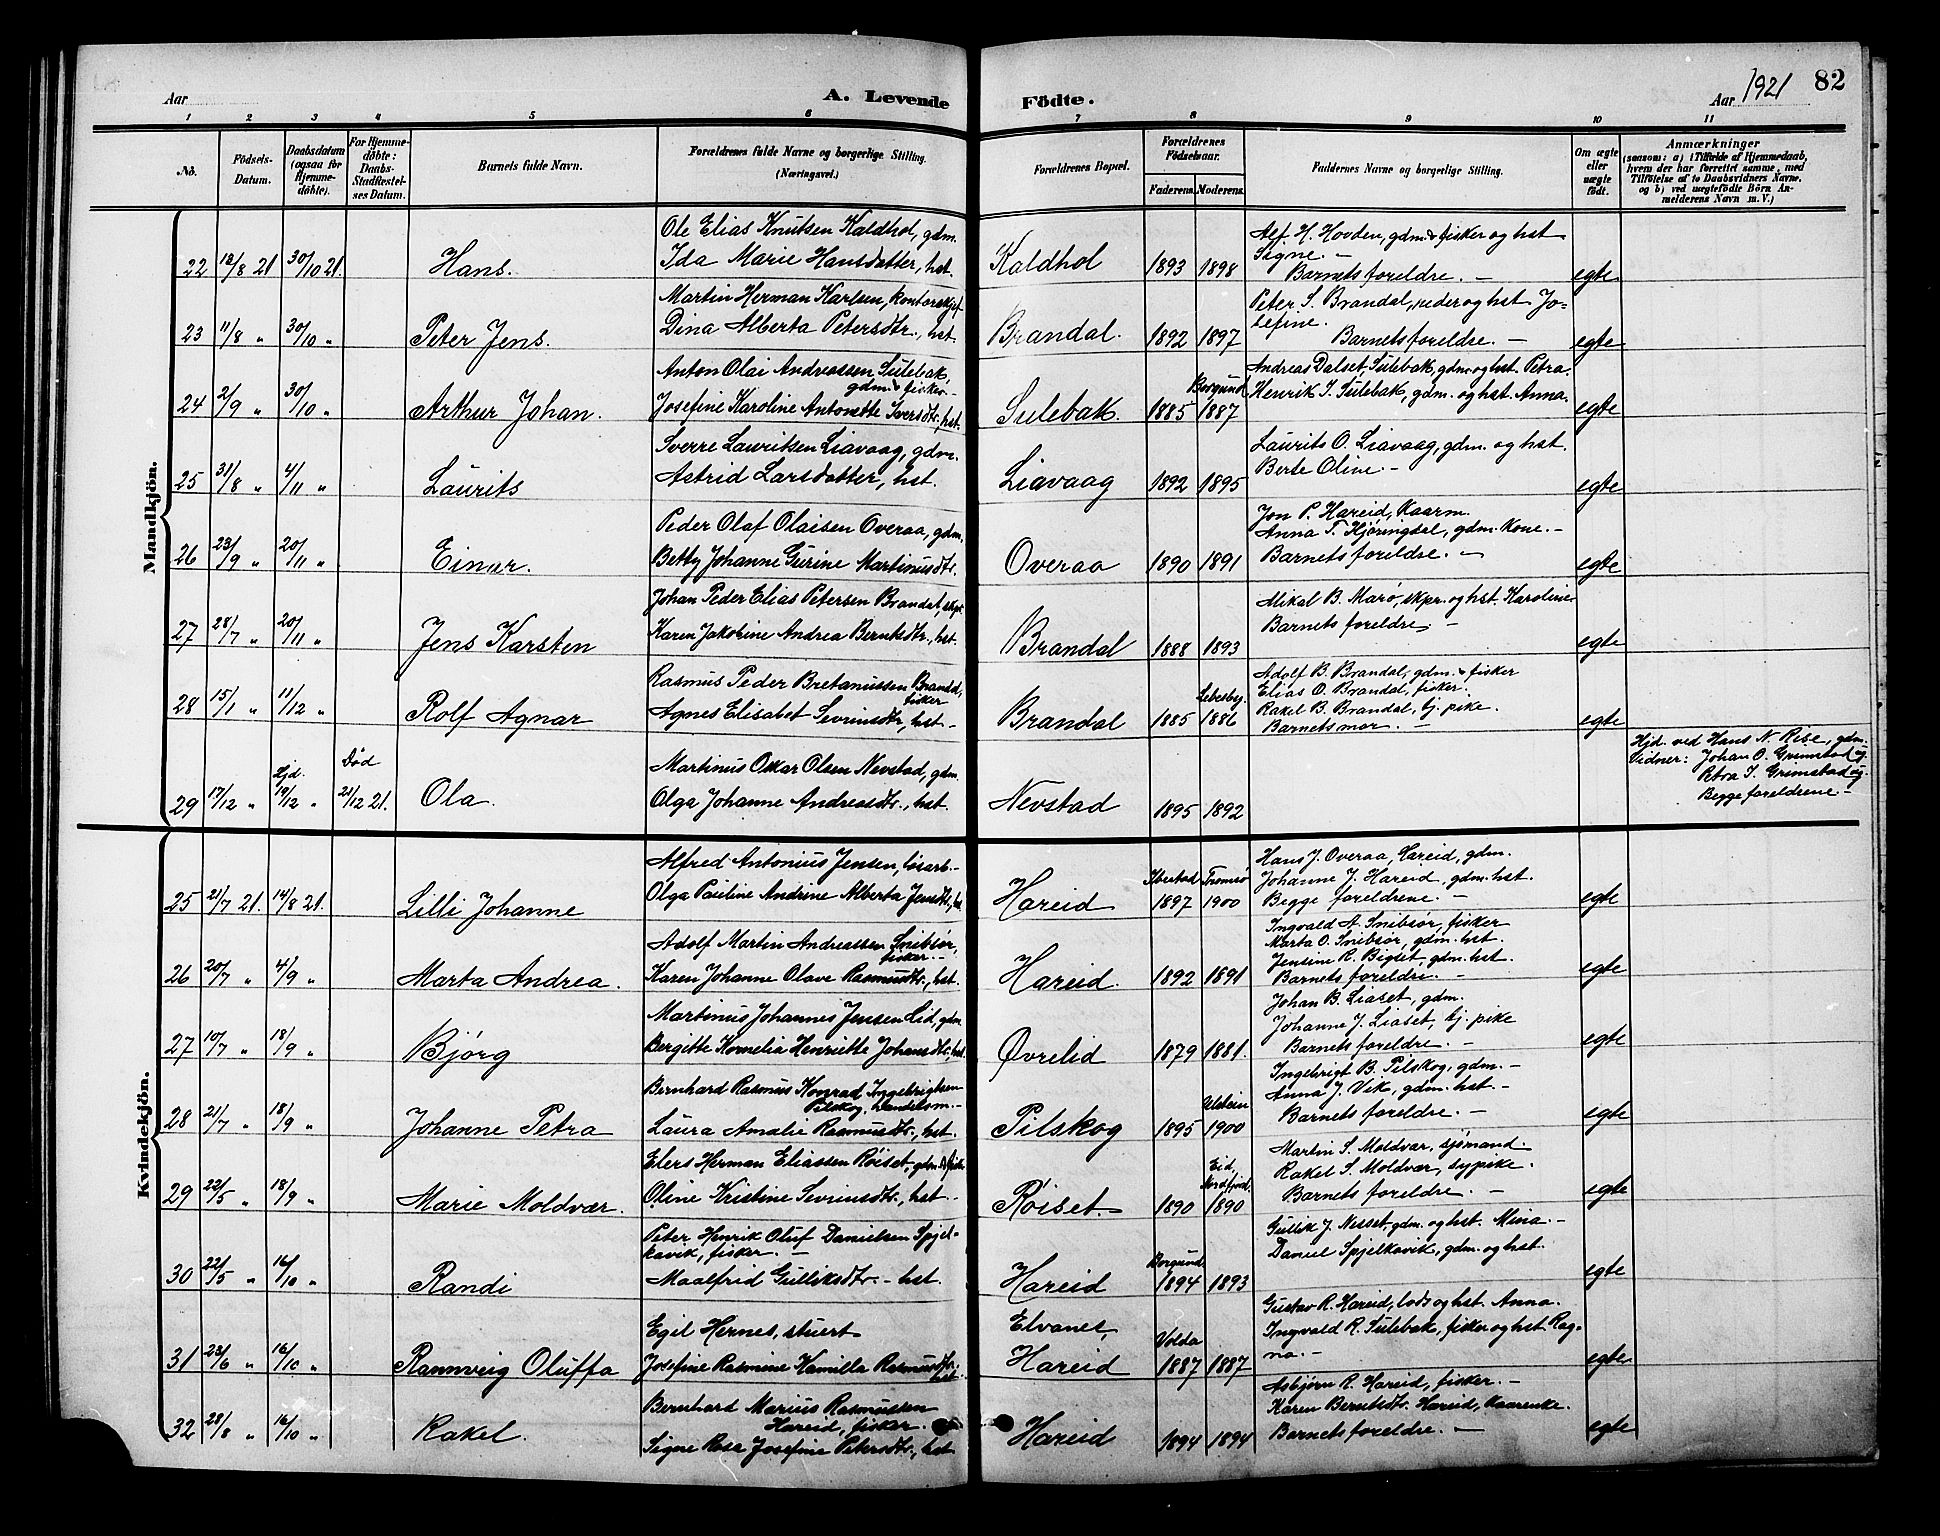 Aar
A. Levende
Födte.
Aar 1921
82
1 2 3 4 5 6 7 8 9 10 11
No.
Födsels-
Datum.
Daabsdatum
(ogsaa for
Hjemme-
döbte).
For Hjemme-
döbte:
Daabs-
Stadfæstel-
ses Datum.
Barnets fulde Navn.
Forældrenes fulde Navne og borgerlige Stilling.
(Næringsvei.)
Forældrenes Bopæl.
Forældrenes
Födselsaar.
Faderens. Moderens.
Faddernes Navne og borgerlige Stilling.
Om ægte
eller
uægte
födt.
Anmærkninger
(saasom: a) i Tilfælde af Hjemmedaab,
hvem der har forrettet samme, med
Tilföielse af to Daabsvidners Navne,
og b) ved uægtefödte Börn An-
melderens Navn m. V.)
Mandkjön.
Ole Elias Knutsen Kaldhol, gdm.
22 12/8 21 30/10 21. Hans. Ida Marie Hansdatter, hst. Kaldhol 1893 1898
Alf. H. Hovden, gdm. & fisker og hst
Signe. —
Barnets foreldre. — egte
Martin Herman Karlsen, kontorskjef
23 11/8 " 30/10 " Peter Jens. Dina Alberta Petersdtr., hst. Brandal. 1892 1897
Peter S. Brandal, reder og hst Jo-
sefine.
Barnets foreldre. — egte
Anton Olai Andreassen Sulebak,
gdm. & fisker. —
24 2/9 " 30/10 " Arthur Johan. Josefine Karoline Antonette Iversdtr., hst. Sulebak. 1885 Borgund 1887
Andreas Dalset, Sulebak, gdm og hst Petra.
Henrik I. Sulebak, gdm. og hst. Anna.
egte
Sverre Lauritsen Liavaag, gdm.
25 31/8 " 4/11 " Laurits Astrid Larsdatter, hst. Liavaag 1892 1895
Laurits O. Liavaag, gdm. og hst.
Berte Oline. —
egte
Peder Olaf Olaisen Overaa, gdm.
26 23/9 " 20/11 " Einar. Betty Johanne Gurine Martinusdtr. Overaa 1890 1891
Jon P. Hareid, Kaarm.
Anna T. Hjøringdal, gdm. Kone. —
Barnets foreldre. —
egte
Johan Peder Elias Petersen Brandal, skpr
27 28/7 " 20/11 " Jens Karsten Karen Jakobine Andrea Berntsdtr., hst. Brandal 1888 1893
Mikal B. Marø, skpr. og hst. Karoline
Barnets foreldre. —
egte
Rasmus Peder Bretanussen Brandal,
fisker
28 15/1 " 11/12 " Rolf Agnar Agnes Elisabet Sevrinsdtr, hst — Brandal 1885 1886
Adolf B. Brandal, gdm. & fisker
Elias O. Brandal, fisker.
Rakel B. Brandal, tj. pike.
Barnets mor. —
egte
Martinus Oskar Olsen Nevstad, gdm
29 17/12 " Hjd. 19/12 " Død 21/12 21. Ola. Olga Johanne Andreasdtr., hst. Nevstad 1895 1892
Hjd. ved Hans N. Rise, gdm.
Vidner: Johan O. Grimstad og
Petra I. Grimstad og
Begge foreldrene —
Kvindekjön.
Alfred Antonius Jensen, løsarb —
25 21/7 21. 14/8 21. Lilli Johanne Olga Pauline Andrine Alberta Jensdtr, hst. Hareid Ibestad 1897 Tromsø 1900
Hans J. Overaa, Hareid, gdm.
Johanne J. Hareid, gdm. hst.
Begge foreldrene —
egte
Adolf Martin Andreassen Snibsør,
fisker —
26 20/7 " 4/9 " Marta Andrea. Karen Johanne Olave Rasmusdtr., hst. Hareid. 1892 1891
Ingvald A. Snibsør, fisker
Marta O. Snibsør, gdm. hst.
Jensine R. Bigset, gdm. hst.
Barnets foreldre. —
egte
Martinus Johannes Jensen Lid, gdm
27 10/7 " 18/9 " Bjørg Bergitte Kornelia Henriette Johansdtr, hst Øvrelid 1879 1881.
Johan B. Liaset, gdm.
Johanne J. Liaset, tj. pike
Barnets foreldre. —
egte
Bernhard Rasmus Konrad Ingebrigtsen
Pilskog, handelsm. —
28 21/7 " 18/9 " Johanne Petra Laura Amalie Rasmusdtr., hst. Pilskog 1895 Ulstein 1900
Ingebrigt B. Pilskog, gdm. —
Anna J. Vik, gdm. hst. —
Barnets foreldre. —
egte
Elers Herman Eliassen Røiset, gdm. & fisker
29 22/5 " 18/9 " Marie Moldvær. Oline Kristine Sevrinsdtr., hst — Røiset. 1890 Eid, Nordfjord. 1890
Martin S. Moldvær, sjømand.
Rakel S. Moldvær, sypike.
Barnets foreldre. —
egte
Peter Henrik Oluf Danielsen Spjel-
kavik, fisker. —
30 22/5 " 16/10 " Randi Maalfrid Gulliksdtr. — hst. Hareid Borgund 1894 1893
Gullik J. Nesset, gdm. og hst. Mina. —
Daniel Spjelkavik, gdm. og hst.
egte
Egil Hernes, stuert
31 23/6 " 16/10 " Rannveig Oluffa Josefine Rasmine Kamilla Rasmusdtr.
hst. Elvanes, Hareid Volda 1887 1887
Gustav R. Hareid, lods og hst. Anna.
Ingvald R. Sulebak, fisker og hst. Rag-
na. —
egte
Bernhard Marius Rasmussen
Hareid, fisker. —
32 28/8 " 16/10 " Rakel. Signe Rosa Josefine Petersdtr., hst Hareid 1894 1894
Asbjørn R. Hareid, fisker. —
Karen Berntsdtr. Hareid, Kaarenke.
Barnets foreldre. —
egte